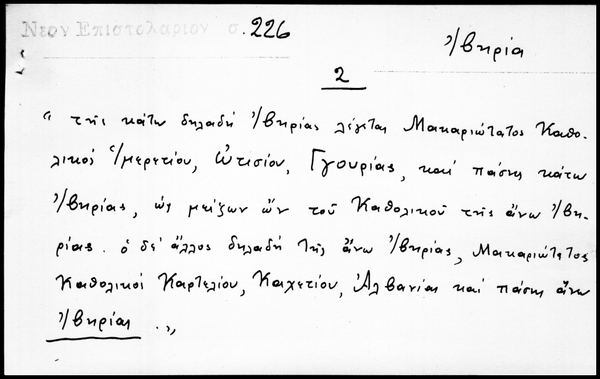 Νεον Επιστολαριον σ. 226
Ἰβηρία
2
“ τῆς κάτω δηλαδή Ἰβηρίας λέγεται Μακαριώτατος Καθο-
λικός Ἰμερετίου, Ὠτισίου, Γγουρίας, καί πάσης κάτω
Ἰβηρίας, ὡς μείζων ὤν τοῦ Καθολικοῦ τῆς ἄνω Ἰβη-
ρίας. ὁ δέ ἄλλος δηλαδή τῆς ἄνω Ἰβηρίας, Μακαριώτατος
Καθολικός Καρτελίου, Καχετίου, Ἀλβανίας καί πάσης ἄνω
Ἰβηρίας .„